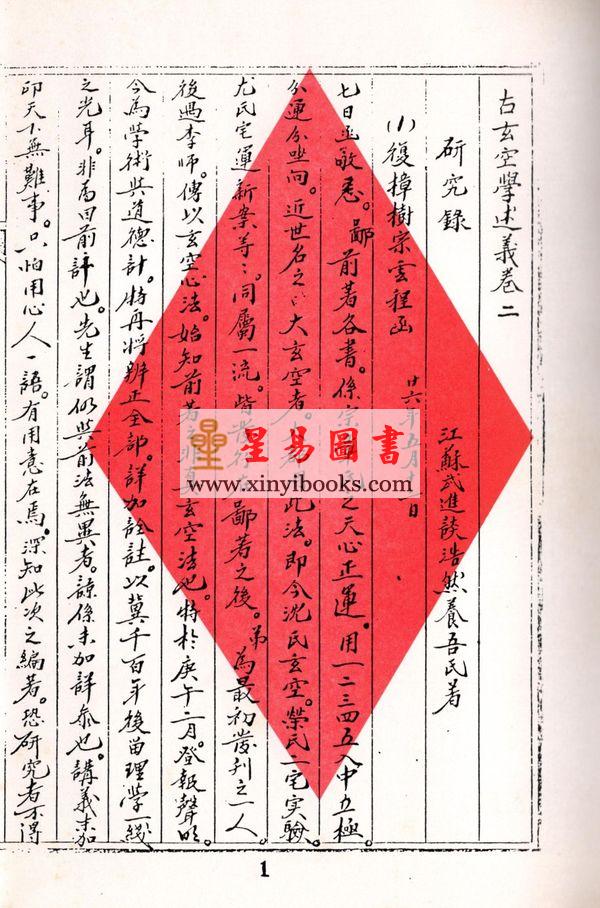 古玄空學述義卷二
研究錄
江蘇武進談浩然養吾氏著
(1)復樟樹宗雲程函
廿六年五月十 日
七日函敬悉。鄙前著各書。係宗 氏之天心正運。用一二三四五入中立極。
分運分坐向。近世名之 大玄空者。 此法。即今沈氏玄空。榮氏二宅实驗。
尤氏宅運新案等等。同屬一流。皆發行在鄙著之後。弟為最初發刊之一人。
後遇李師。傳以玄空心法。始知前著之非真玄空法也。特於庚午二月。登報聲明。
今為學術與道德計。特再將辨正全部。詳加詮註。以冀千百年後留理學一綫
之光耳。非為因前 也。先生謂仍與前法無異者。諒係未加詳叅也。講義末加
印天下無難事。只怕用心人一語。有用意在焉。深知此次之編著。恐研究者不得
星易圖書
www.xinyibooks.com
1